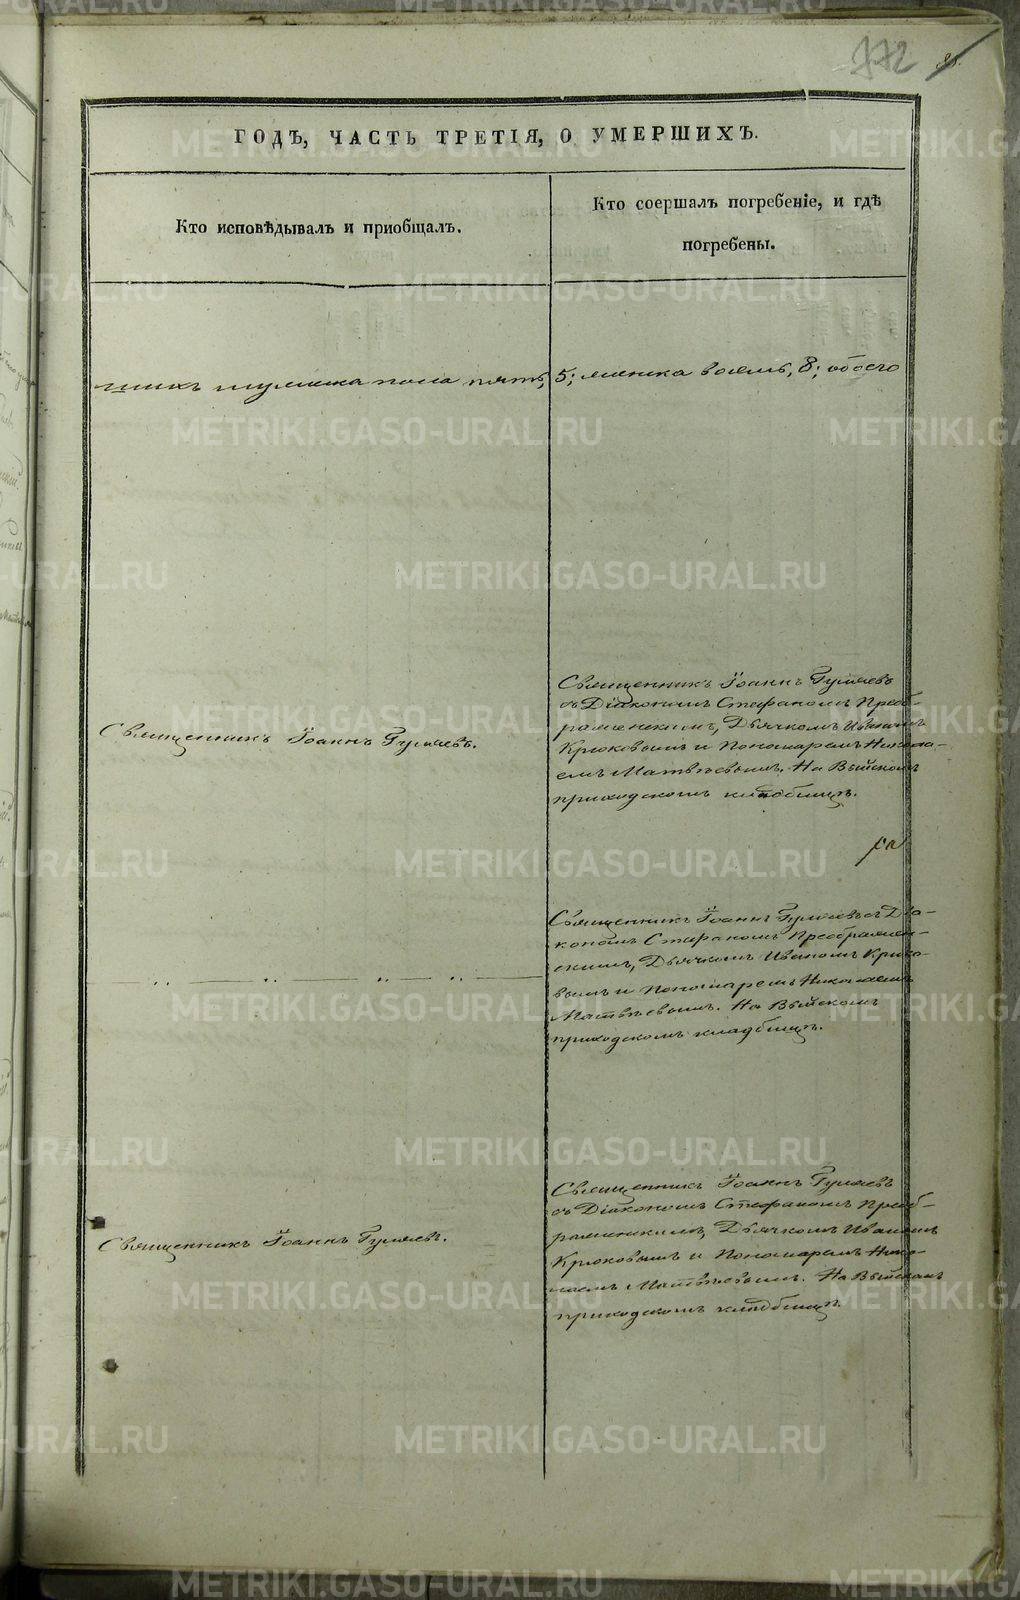 372
ГОДЪ, ЧАСТЬ ТРЕТІЯ, О УМЕРШИХЪ.
Кто исповѣдывалъ и пріобщалъ.
Кто соершалъ погребеніе, и гдѣ
погребены.
шихъ мужеска пола пять, 5; женска восемь, 8; обоего
Священникъ Іоаннъ Гуляевъ.
Священникъ Іоаннъ Гуляевъ
съ Діакономъ Стефаномъ Преоб-
раженскимъ, Дьячкомъ Иваномъ
Крюковымъ и Пономаремъ Никола-
емъ Матвѣевымъ. На Выйскомъ
приходскомъ кладбищѣ.
Священникъ Іоаннъ Гуляевъ съ Діа-
кономъ Стефаномъ Преображен-
скимъ, Дьячкомъ Иваномъ Крюко-
вымъ и Пономаремъ Николаемъ
Матвѣевымъ. На Выйскомъ
приходскомъ кладбищѣ.
Священникъ Іоаннъ Гуляевъ.
Священникъ Іоаннъ Гуляевъ
съ Діакономъ Стефаномъ Преоб-
раженскимъ, Дьячкомъ Иваномъ
Крюковымъ и Пономаремъ Нико-
лаемъ Матвѣевымъ. На Выйскомъ
приходскомъ кладбищѣ.
METRIKI.GASO-URAL.RU